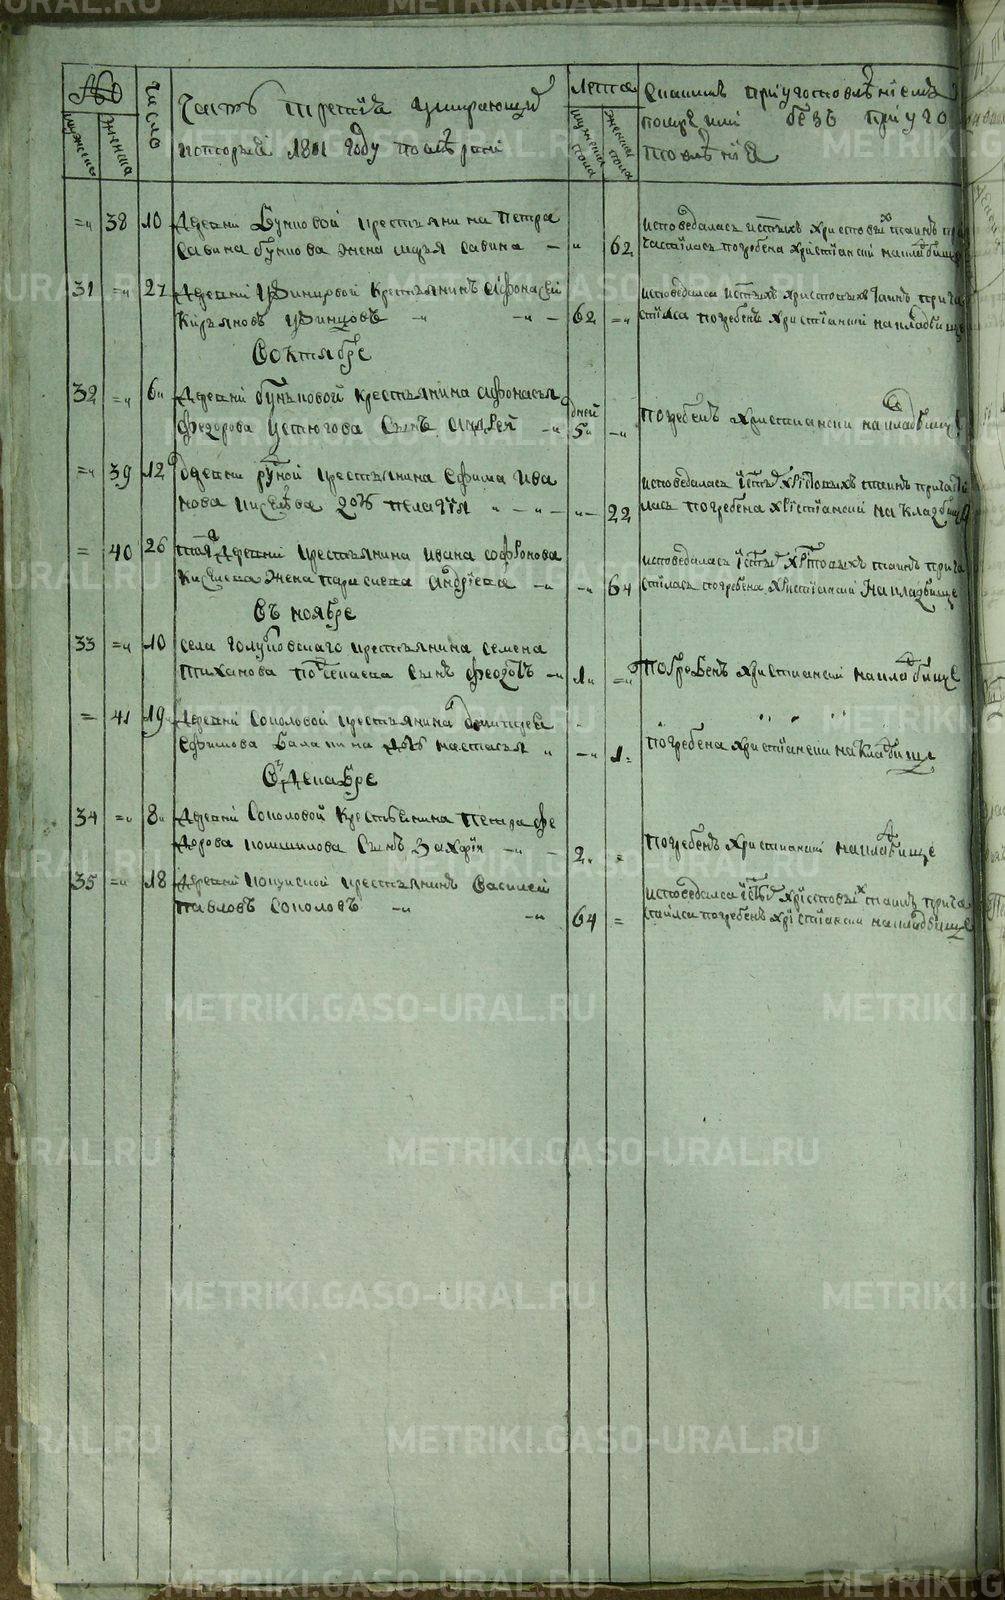 METRIKI.GASO-URAL.RU
№
мужеска
женска
число
Часть третïя умирающий
которыя 1801 году померли
лета
мужеска пола
женска пола
с каким приуготовлениемъ
помре или безъ приуго
товленïя
=" 38 10 деревни Бунковой крестьянина петра
савина бункова жена марья савина — " 62
исповедалась и святыхъ христовыхъ таинъ при
частилась погребена христïански на кладбище
31 =" 27 деревни крестьянинъ афонасей
Кирьяновъ —" —" — 62 ="
исповедался и святыхъ христовыхъ таинъ прича
стился погребенъ христïански на кладбище
В октябре
32 =" 6" деревни бунковой крестьянина афонасья
федорова устюгова сынъ андрей —" дней 5" —"
погребенъ христиански на кладбище
=" 39 12 деревни крестьянина ефима ива
нова киселева дочь пелагïя " — " — "— 22
исповедалась и святыхъ христовыхъ таинъ причасти
лась погребена христïански на кладбище
= 40 26 тоя деревни крестьянина ивана софронова
Киселева жена параскева андрïева —" —" 64
исповедалась и святыхъ христовыхъ таинъ прича
стилась погребена христïански на кладбище
Въ ноябре
33 =" 10 села голубковскаго крестьянина семена
тиханова сынъ федотъ —" 1" ="
погребенъ христиански на кладбище
= 41 19" деревни соколовой крестьянина дмитрея
ефимова балакина дочь настасья " —" 1"
погребена христïански на кладбище
Въ декабре
34 =" 8" деревни соколовой крестьянина петра фе
дорова сынъ захарïя —" — 2. =
погребенъ христиански на кладбище
35 =" 18 деревни крестьянинъ василей
павловъ соколовъ —" —" 64 =
исповедался и святыхъ христовыхъ таинъ прича
стился погребенъ христïански на кладбище